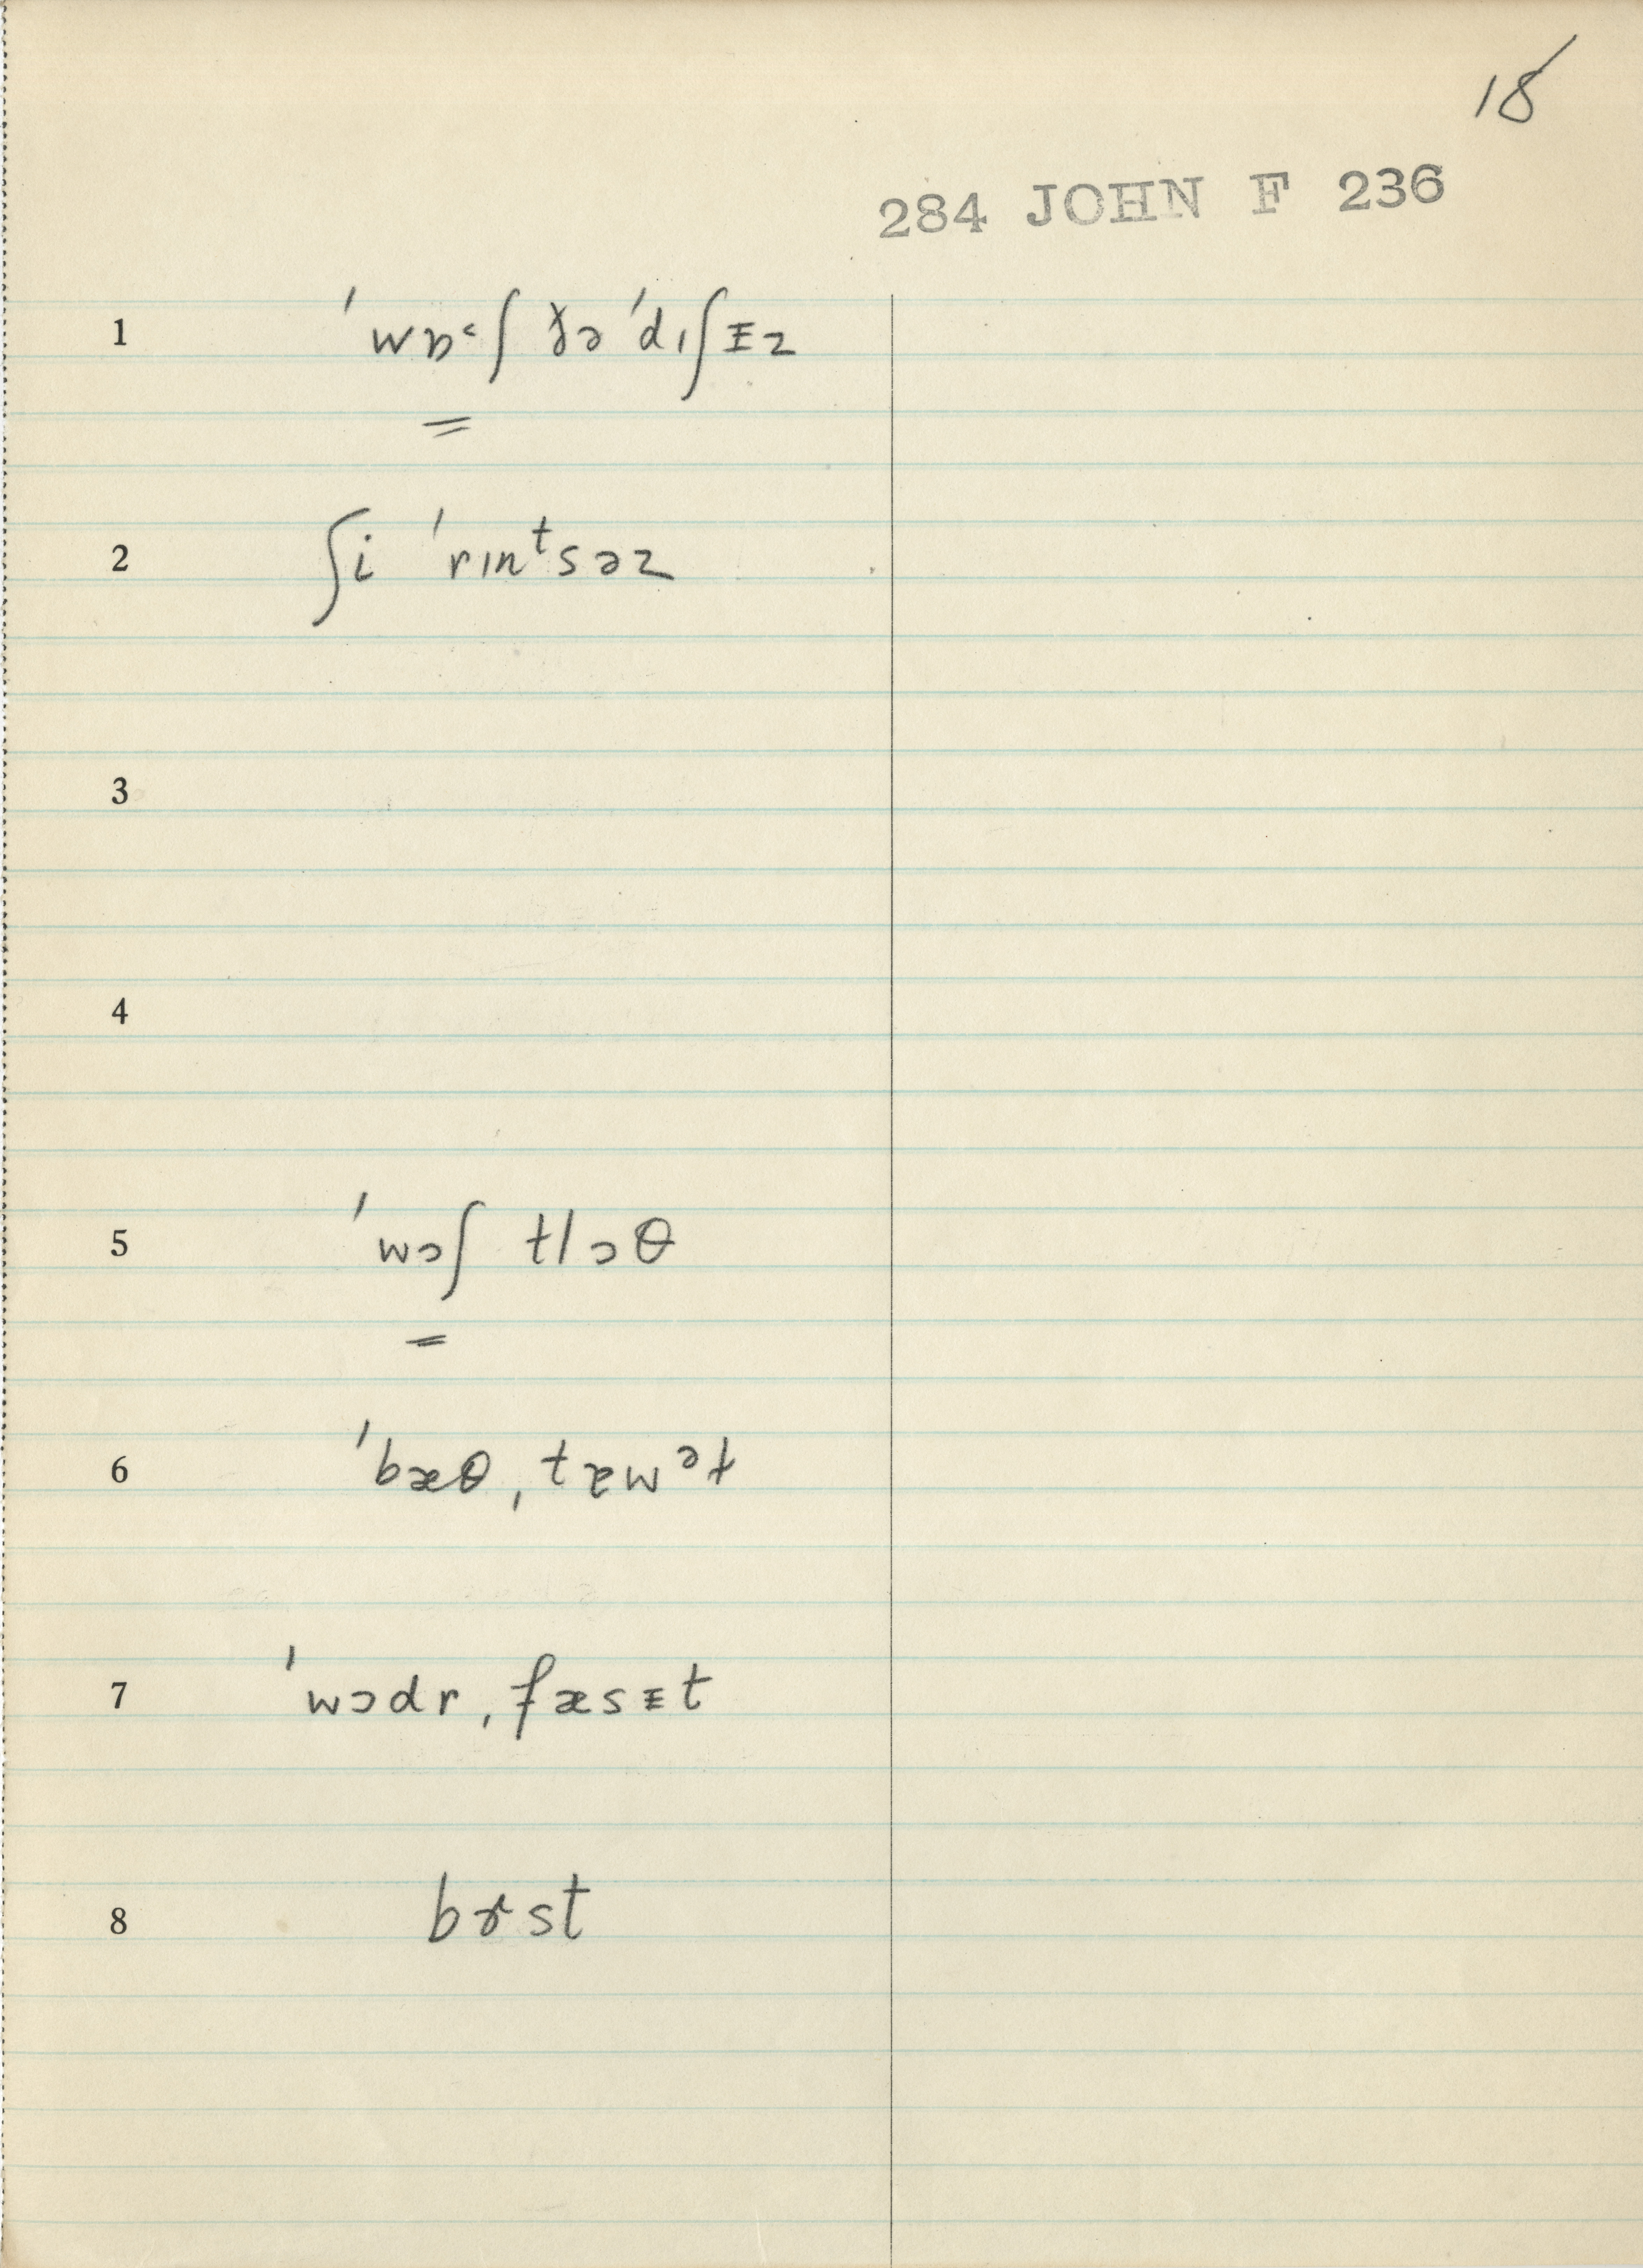 18
284 JOHN F 236
1 ˈwɒ˂ʃ ðə ˈdɪʃɪz
2 ʃi ˈrɪnᵗsəz
3
4
5 ˈwɔʃ klɔθ
6 ˈbæθˌt
7 ˈwɔdrˌfæsɪt
8 bɝst